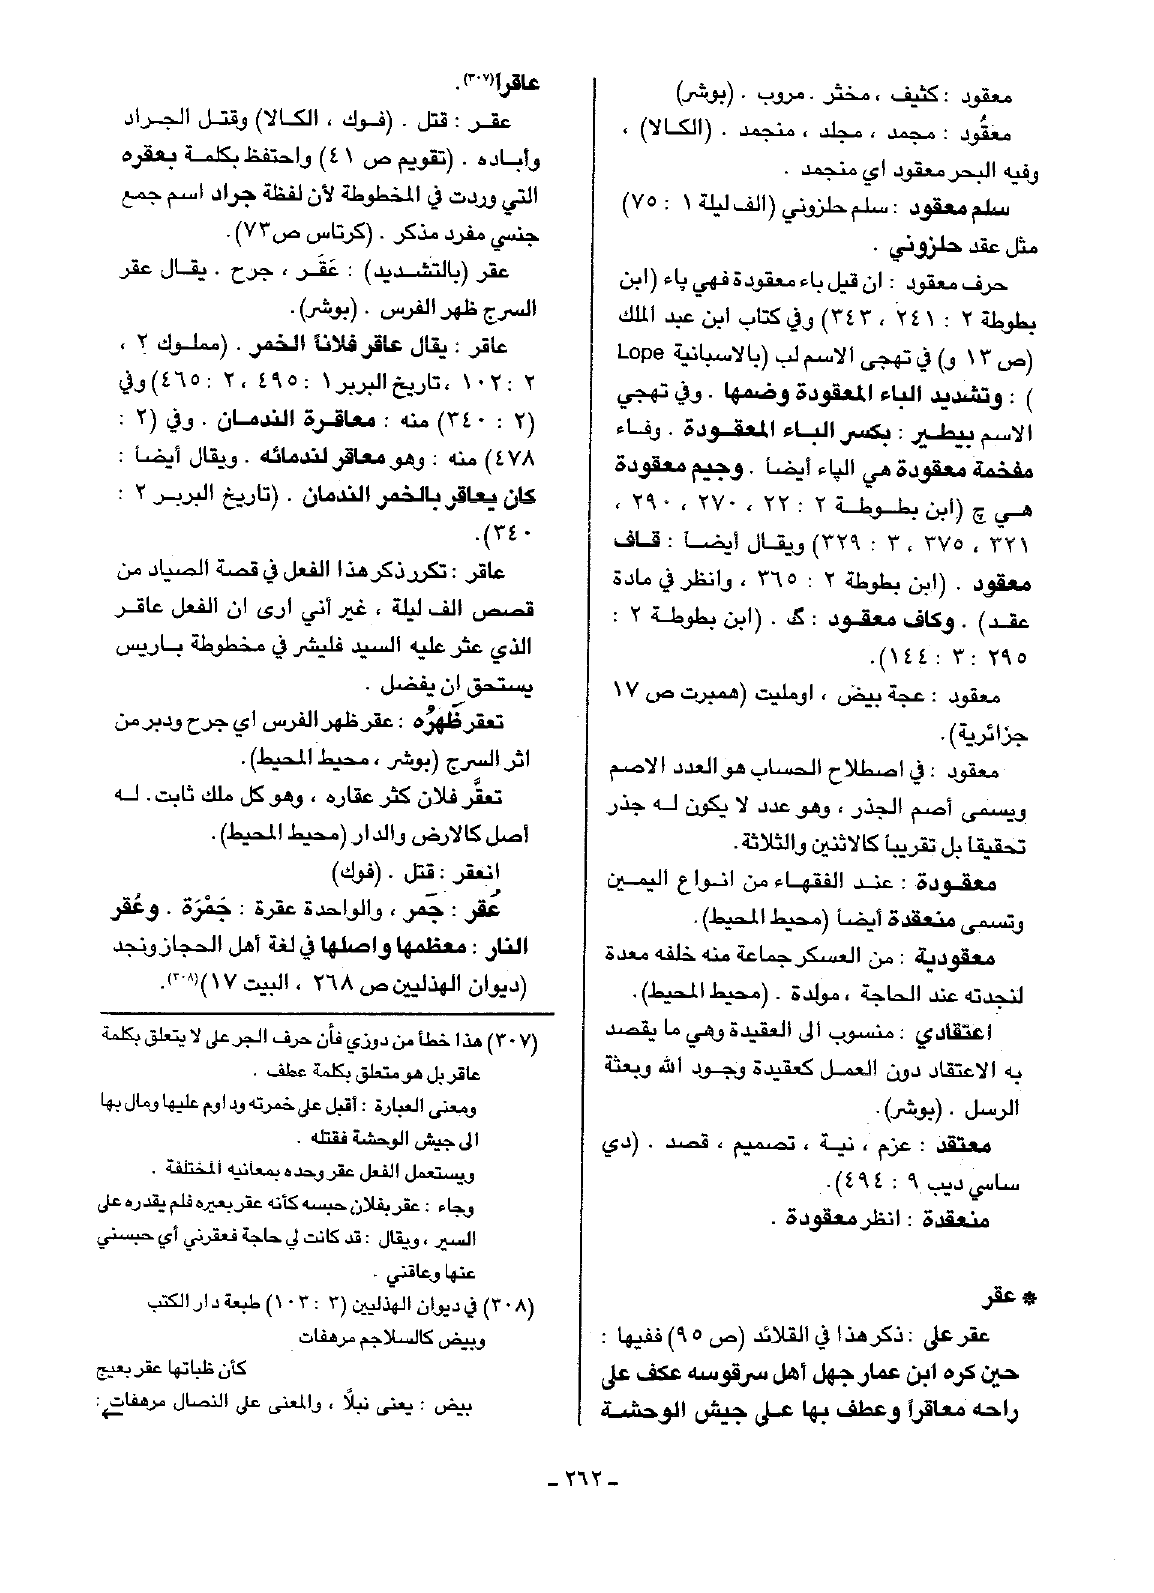 معقود : كثيف ، مخثر . مروب . (بوشر)
معقُود : مجمد ، مجلد ، منجمد . (الكالا) ،
وفيه البحر معقود أي منجمد .
سلم معقود : سلم حلزوني (الف ليلة ١ : ٧٥)
مثل عقد حلزوني .
حرف معقود : ان قيل باء معقودة فهي پاء (ابن
بطوطة ٢ : ٢٤١ ، ٣٤٣) وفي كتاب ابن عبد الملك
(ص ١٣ و) في تهجي الاسم لب (بالاسبانية Lope
) : وتشديد الباء المعقودة وضمها . وفي تهجي
الاسم بيطير : بكسر الباء المعقودة . وفاء
مفخمة معقودة هي الپاء أيضاً . وجيم معقودة
هي چ (ابن بطوطة ٢ : ٢٢ ، ٢٧٠ ، ٢٩٠ ،
٣٢١ ، ٣٧٥ ، ٣ : ٣٢٩) ويقال أيضاً : قاف
معقود . (ابن بطوطة ٢ : ٣٦٥ ، وانظر في مادة
عقد) . وكاف معقود : گ . (ابن بطوطة ٢ :
٢٩٥ : ٣ : ١٤٤).
معقود : عجة بيض ، اومليت (همبرت ص ١٧
جزائرية).
معقود : في اصطلاح الحساب هو العدد الاصم
ويسمى أصم الجذر ، وهو عدد لا يكون له جذر
تحقيقا بل تقريباً كالاثنين والثلاثة.
معقودة : عند الفقهاء من انواع اليمين
وتسمى منعقدة أيضاً (محيط المحيط).
معقودية : من العسكر جماعة منه خلفه معدة
لنجدته عند الحاجة ، مولدة . (محيط المحيط).
اعتقادي : منسوب الى العقيدة وهي ما يقصد
به الاعتقاد دون العمل كعقيدة وجود الله وبعثة
الرسل . (بوشر).
معتقد : عزم ، نية ، تصميم ، قصد . (دي
ساسي ديب ٩ : ٤٩٤).
منعقدة : انظر معقودة .
* عقر
عقر على : ذكر هذا في القلائد (ص ٩٥) ففيها :
حين كره ابن عمار جهل أهل سرقوسه عكف على
راحه معاقراً وعطف بها على جيش الوحشة
عاقرا(٣٠٧).
عقر : قتل . (فوك ، الكالا) وقتل الجراد
وأباده . (تقويم ص ٤١) واحتفظ بكلمة بعقره
التي وردت في المخطوطة لأن لفظة جراد اسم جمع
جنسي مفرد مذكر . (كرتاس ص ٧٣).
عقر (بالتشديد) : عَقَر ، جرح . يقال عقر
السرج ظهر الفرس . (بوشر).
عاقر : يقال عاقر فلاناً الخمر . (مملوك ٢ ،
٢ : ١٠٢ ، تاريخ البربر ١ : ٤٩٥ ، ٢ : ٤٦٥) وفي
(٢ : ٣٤٠) منه : معاقرة الندمان . وفي (٢ :
٤٧٨) منه : وهو معاقر لندمائه . ويقال أيضاً :
كان يعاقر بالخمر الندمان . (تاريخ البربر ٢ :
٣٤٠).
عاقر : تكرر ذكر هذا الفعل في قصة الصياد من
قصص الف ليلة ، غير أني ارى ان الفعل عاقر
الذي عثر عليه السيد فليشر في مخطوطة باريس
يستحق ان يفضل .
تعقر ظَهرُه : عقر ظهر الفرس اي جرح ودبر من
اثر السرج (بوشر ، محيط المحيط).
تعقَّر فلان كثر عقاره ، وهو كل ملك ثابت . له
أصل كالارض والدار (محيط المحيط).
انعقر : قتل . (فوك)
عُقر : جَمر ، والواحدة عقرة : جَمْرَة . وعُقر
النار : معظمها واصلها في لغة أهل الحجاز ونجد
(ديوان الهذليين ص ٢٦٨ ، البيت ١٧)(٣٠٨).
(٣٠٧) هذا خطأ من دوزي فأن حرف الجر على لا يتعلق بكلمة
عاقر بل هو متعلق بكلمة عطف .
ومعنى العبارة : أقبل على خمرته وداوم عليها ومال بها
الى جيش الوحشة فقتله .
ويستعمل الفعل عقر وحده بمعانيه المختلفة .
وجاء : عقر بفلان حبسه كأنه عقر بعيره فلم يقدره على
السير ، ويقال : قد كانت لي حاجة فعقرني أي حبسني
عنها وعاقني .
(٣٠٨) في ديوان الهذليين (٣ : ١٠٣) طبعة دار الكتب
وبيض كالسلاجم مرهفات
كأن ظباتها عقر بعيج
بيض : يعنى نبلاً ، والمعنى على النصال مرهفات :
- ٢٦٢ -